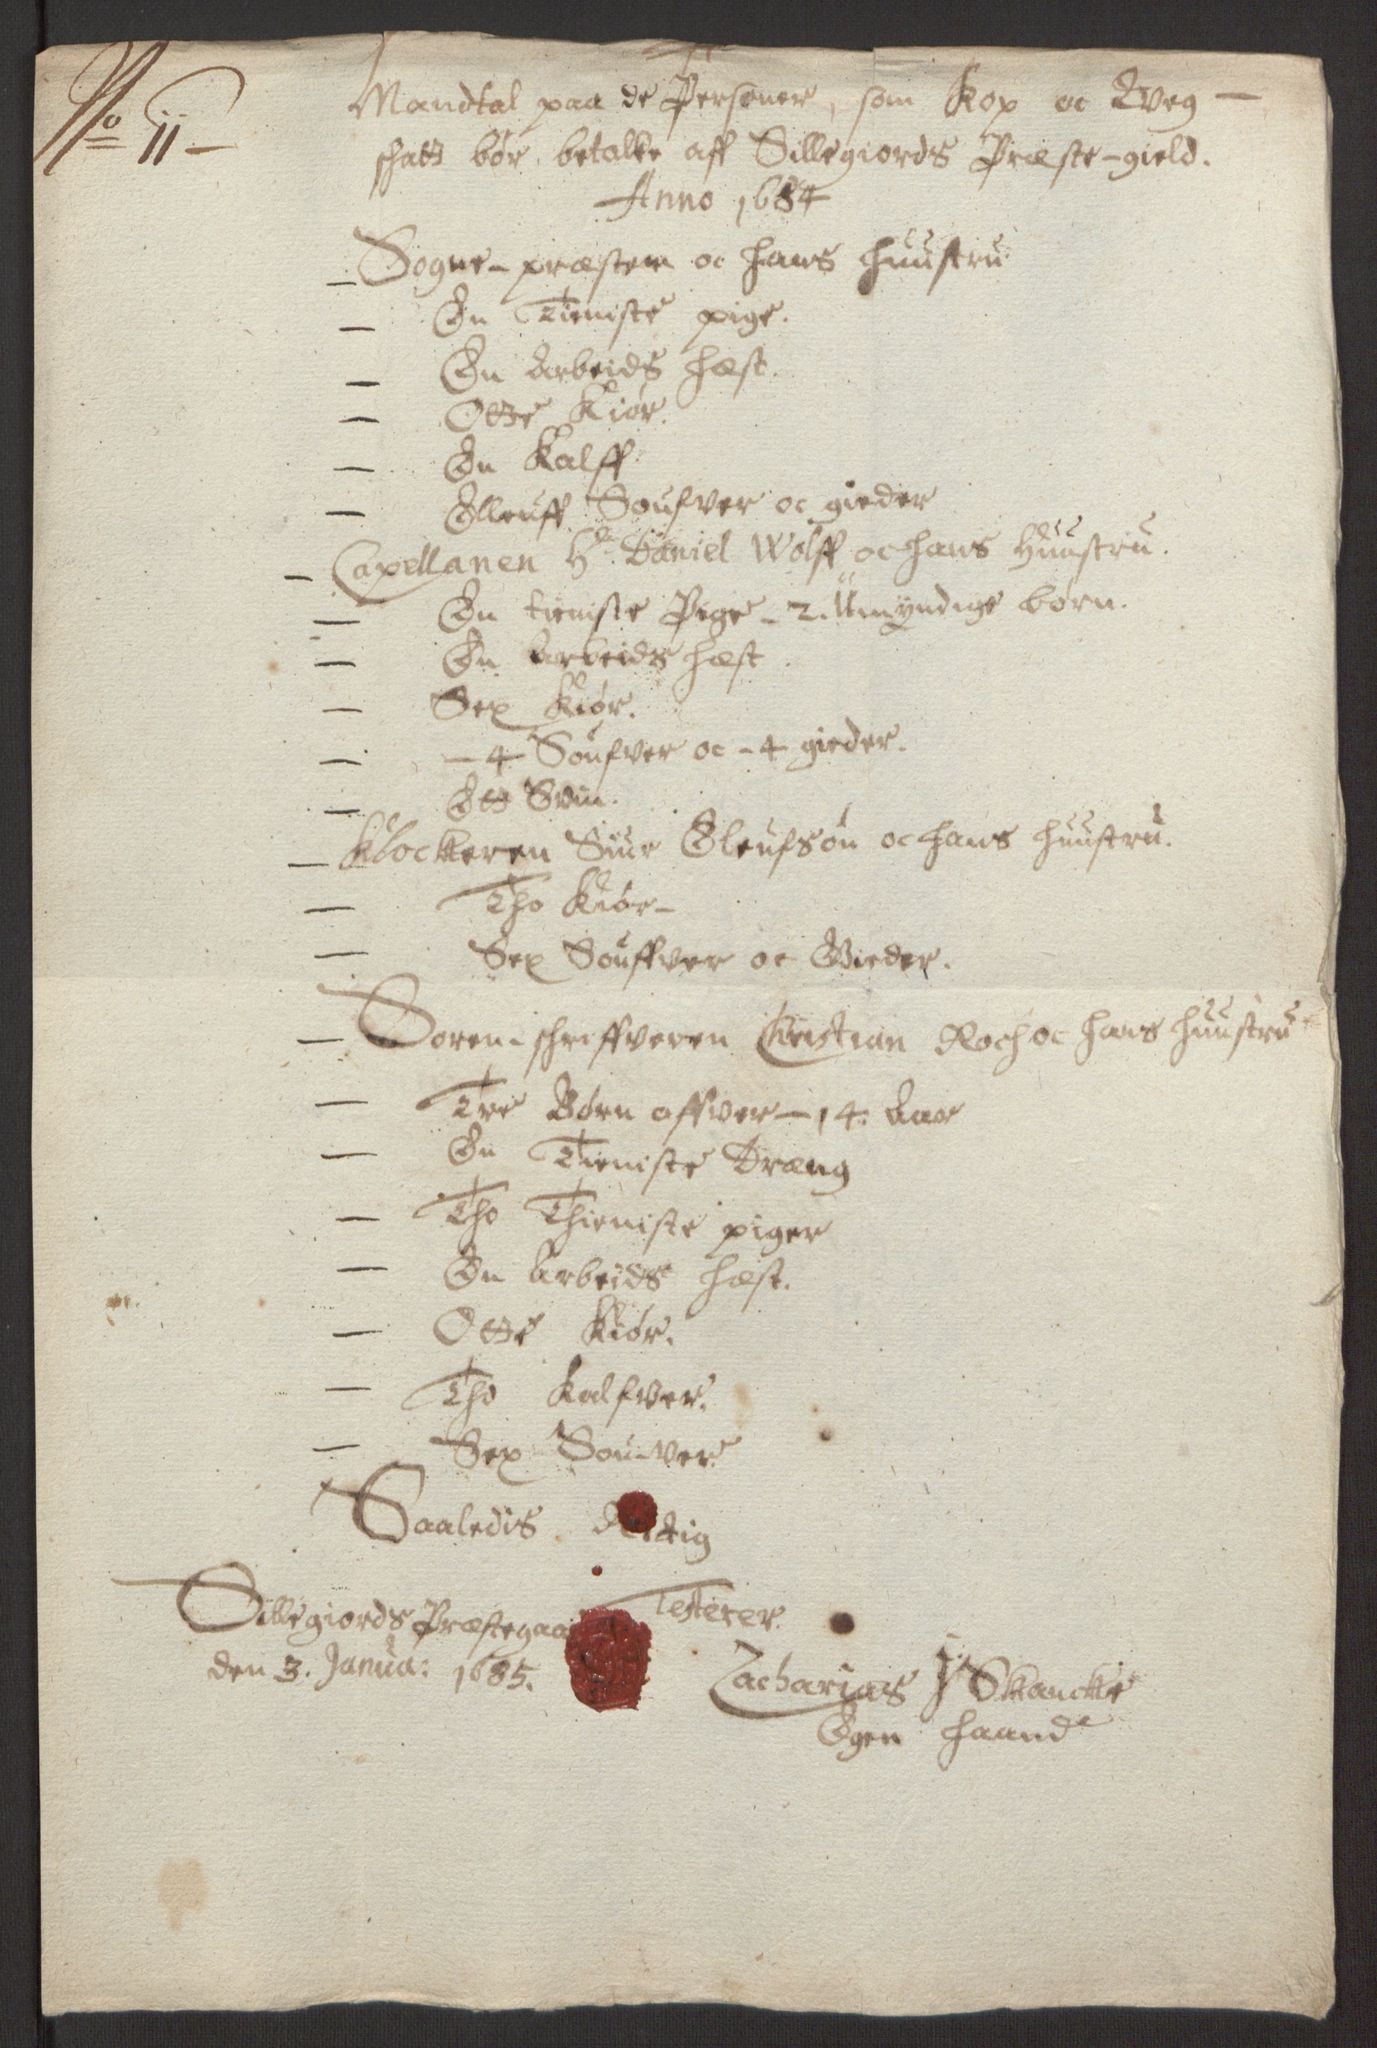 No 11
Mandtal paa de Personer, som Kop oc Qveg
schatt bør betalle aff Sillegiords Præste-gield.
Anno 1684
Sogne-præsten oc hans huustru
En Tieniste pige.
En Arbeids hæst.
Otte Kiør.
En Kalff
Elleuff Soufver oc gieder
Capellanen Hr. Daniel Wolff oc hans Huustru.
En tieniste Pige - 2. Umyndige børn.
En Arbeids hæst
Sex Kiør.
- 4 Soufver oc - 4 gieder.
Ett Svin.
Klockeren Siur Oleufsøn oc hans huustru.
Tho Kiør-
Sex Souffver oc Gieder.
Soren-schriffveren Christian Roch oc hans huustru
Tre Børn offver - 14. Aar
En Tieniste Dræng
Tho Thieniste piger
En Arbeids hæst.
Otte Kiør.
Tho Kalfver.
Sex Sou-ver
Saaledis Rigtig
Sillegiords Præstegaa
Testerer.
den 3. Janua: 1685.
Zacharias J Skancke
Egen haand